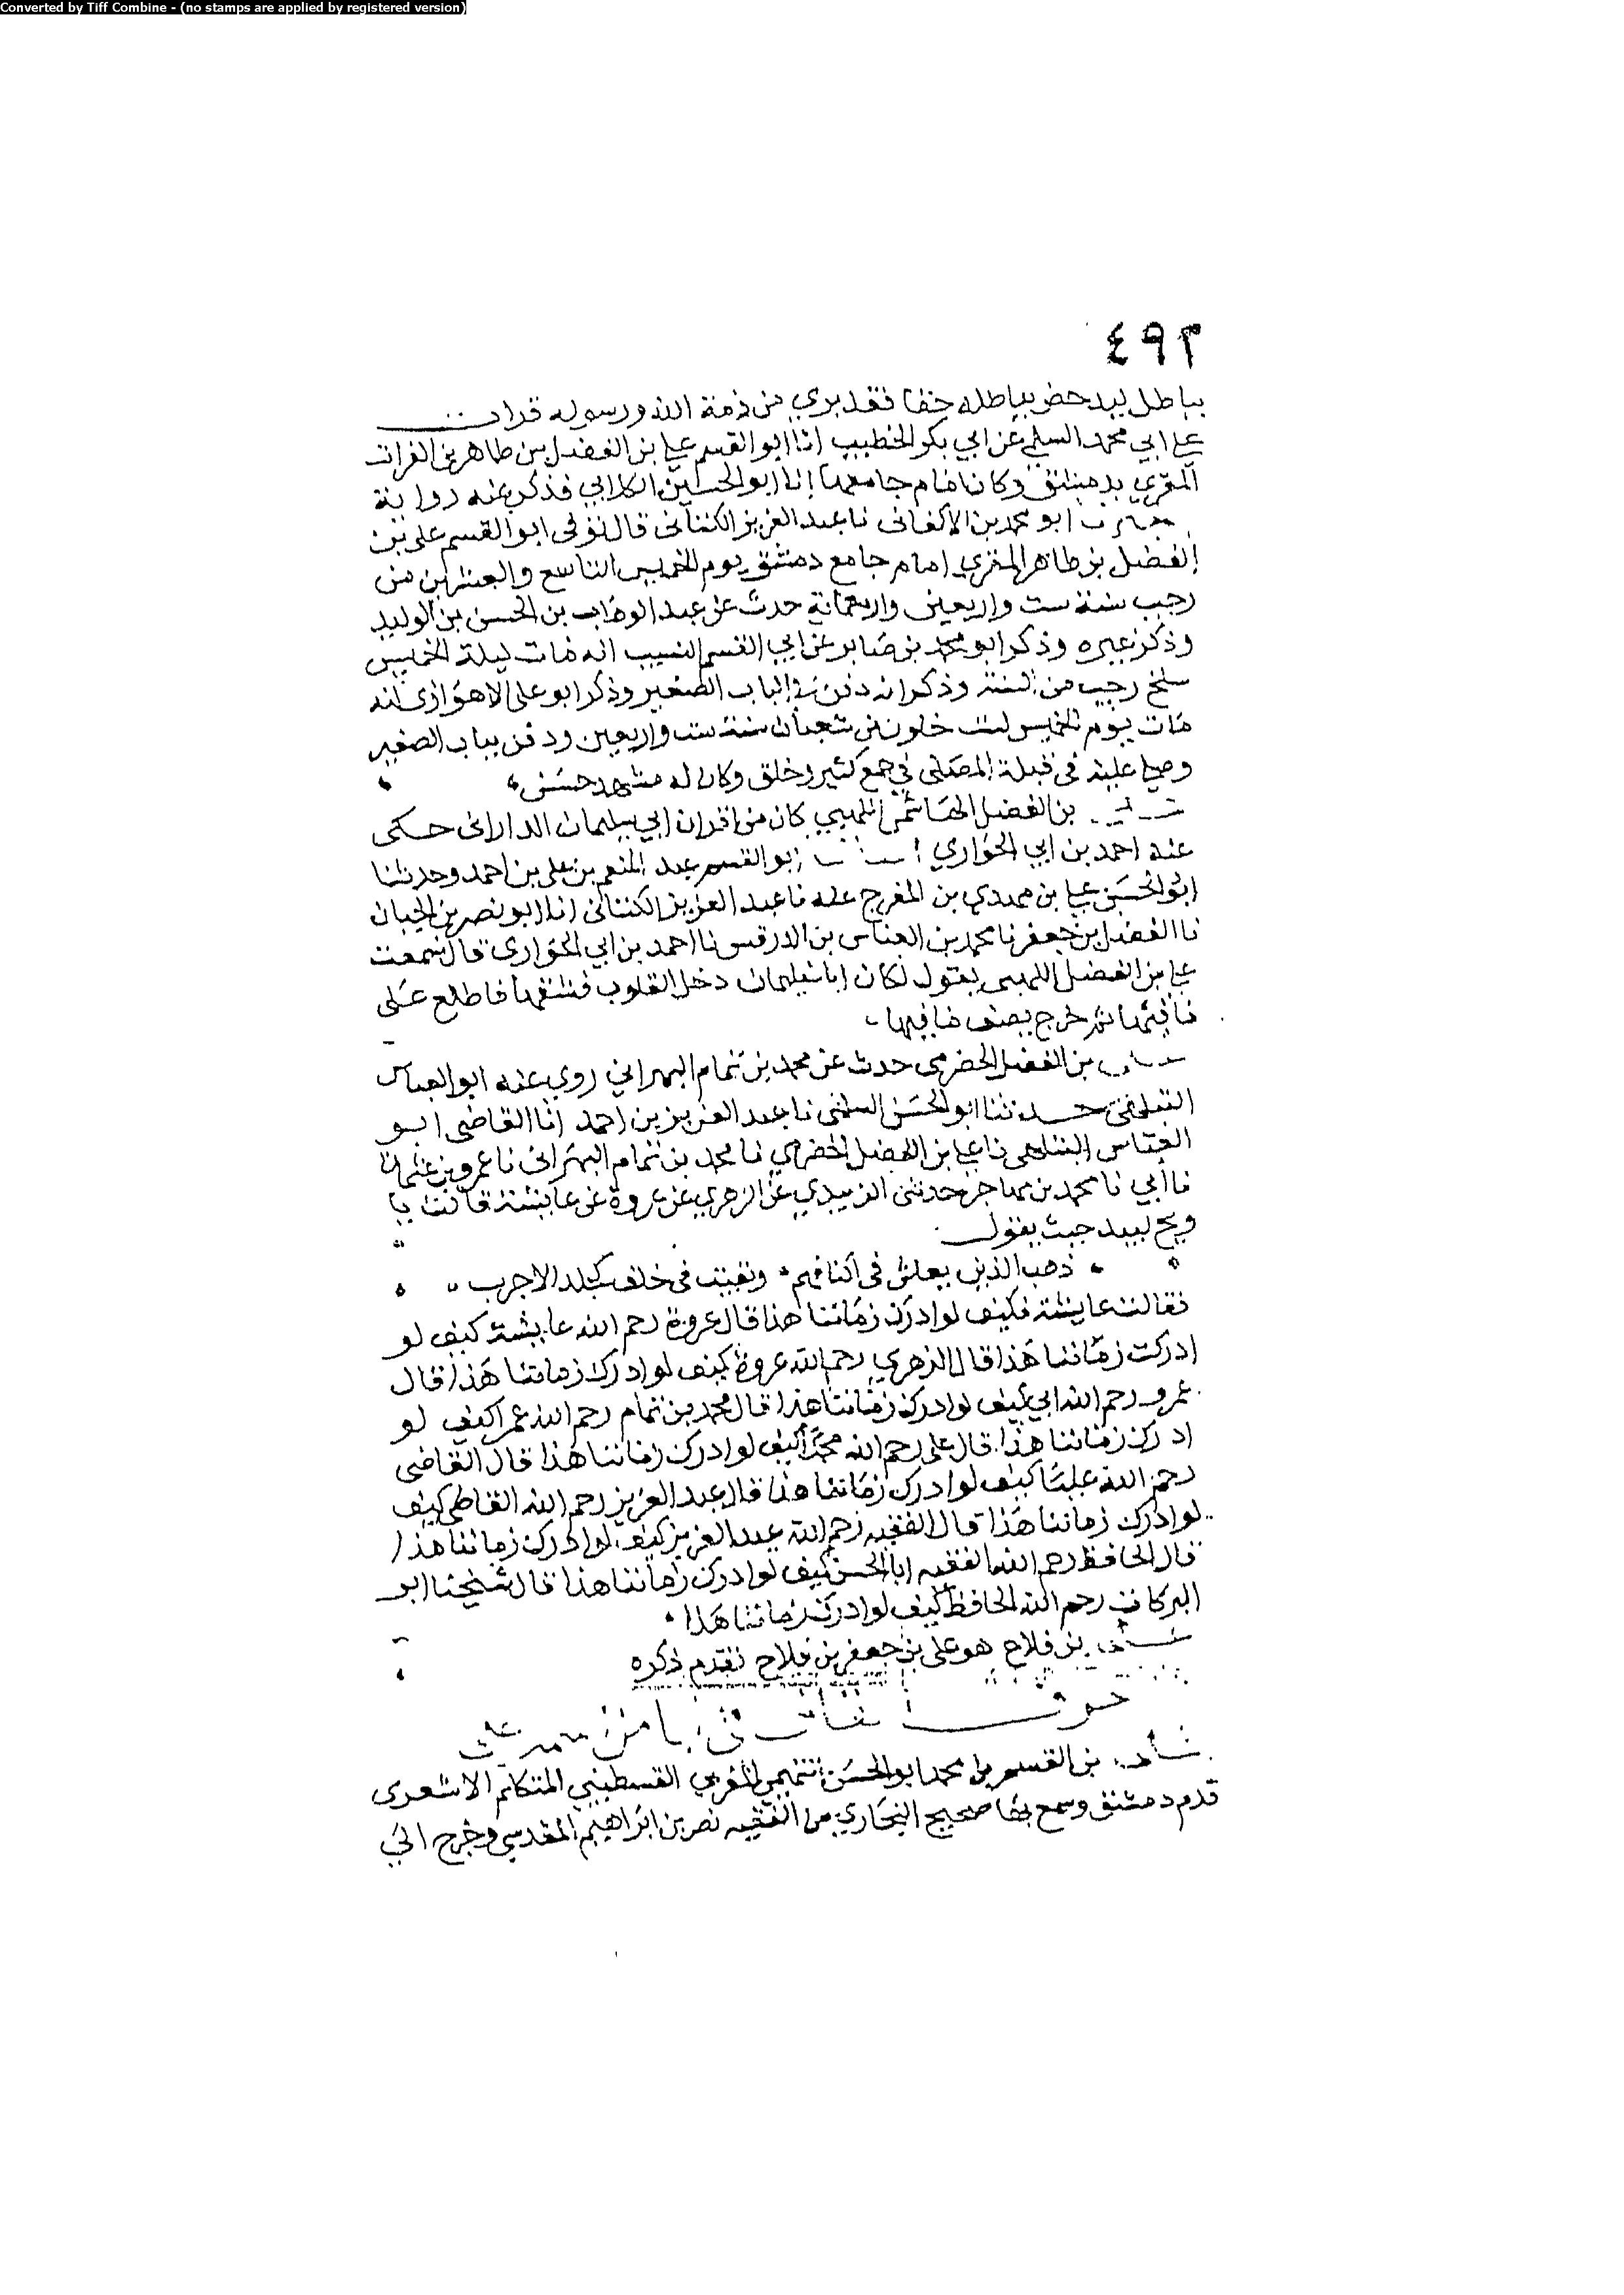 Converted by Tiff Combine - (no stamps are applied by registered version)
٤٩٣
بباطل ليدحض بباطله حقا فقد بري من ذمة الله ورسوله قرات
على ابي محمد السلمي عن ابي بكر الخطيب انا ابو القسم علي بن الفضل بن طاهر بن الفرات
المقري بدمشق وكان امام جامعها انا ابو الحسين الكلابي فذكر عنه رواية
ابو محمد بن الاكفاني نا عبد العزيز الكتاني قال توفي ابو القسم على بن
الفضل بن طاهر المقري امام جامع دمشق يوم الخميس التاسع والعشرين من
رجب سنة ست واربعين واربعمائة حدث عن عبد الوهاب بن الحسن بن الوليد
وذكر غيره وذكر ابو محمد بن صابر عن ابي القسم النسيب انه مات ليلة الخميس
سلخ رجب من السنة وذكر انه دفن في الباب الصغير وذكر ابو على الاهوازى انه
مات يوم الخميس لست خلون من شعبان سنة ست واربعين ودفن بباب الصغير
وصلى عليه فى قبلة المصلى في جمع كثير وخلق وكان له مشهد حسن
بن الفضل الهاشمي اللهبي كان من اقران ابي سليمان الداراني حكى
عنه احمد بن ابي الحواري ابو القسم عبد المنعم بن على بن احمد وحدثنا
ابو الحسن علي بن مهدي بن المفرج عنه نا عبد العزيز الكتاني انا ابو نصر بن الجبان
نا الفضل بن جعفر نا محمد بن العباس بن الدرفس نا احمد بن ابي الحوارى قال سمعت
علي بن الفضل اللهبي يقول لكان ابا سليمان دخل القلوب فشقها فاطلع على
ما فيها ثم خرج يصف ما فيها
بن الفضل الحضرمي حدث عن محمد بن تمام البهراني روي عنه ابو العباس
حدثنا ابو الحسن السلمي نا عبد العزيز بن احمد انا القاضي ابو
العباس نا علي بن الفضل الحضرمي نا محمد بن تمام البهراني نا عمرو بن عثمان
نا أبي نا محمد بن مهاجر حدثني الزبيدي عن الزهري عن عروة عن عايشة قالت يا
ويح لبيد حيث يقول
ذهب الذين يعاش في اكنافهم وبقيت في خلف كجلد الاجرب
فقالت عايشة فكيف لو ادرك زماننا هذا قال عروة رحم الله عايشة كيف لو
ادركت زماننا هذا قال الزهري رحم الله عروة كيف لو ادرك زماننا هذا قال
عمرو رحم الله ابي كيف لو ادرك زماننا هذا قال محمد بن تمام رحم الله عمرا كيف لو
ادرك زماننا هذا قال على رحم الله محمدا كيف لو ادرك زماننا هذا قال القاضي
رحم الله عليا كيف لو ادرك زماننا هذا قال عبد العزيز رحم الله القاضي كيف
لو ادرك زماننا هذا قال الفقيه رحم الله عبد العزيز كيف لو ادرك زماننا هذا
قال الحافظ رحم الله الفقيه ابا الحسن كيف لو ادرك زماننا هذا قال شيخنا ابو
البركات رحم الله الحافظ كيف لو ادرك زماننا هذا
بن فلاح هو على بن جعفر بن فلاح تقدم ذكره
بن القسم بن محمد ابو الحسن التميمي المغربي القسطيني المتكلم الاشعرى
قدم دمشق وسمع بها صحيح البخاري من الفقيه نصر بن ابراهيم المقدسي وخرج الى